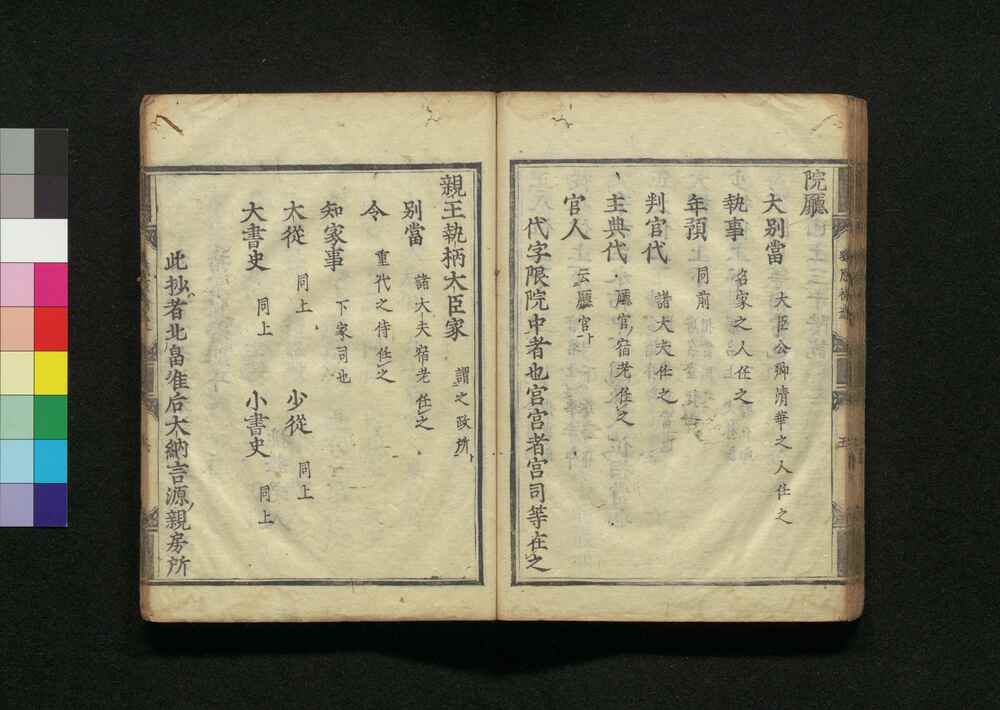 院廳
大別當 大臣公卿清華之人任之
執事 名家之人任之
年預 同前
判官代 諸大夫任之
主典代 廳官宿老任之
官人 云廳官
代字限院中者也宮宮者宮司等在之
親王執柄大臣家 謂之政所
別當 諸大夫宿老任之
令 重代之侍任之
知家事 下家司也
大從 同上 少從 同上
大書史 同上 小書史 同上
此抄者北畠准后大納言源親房所